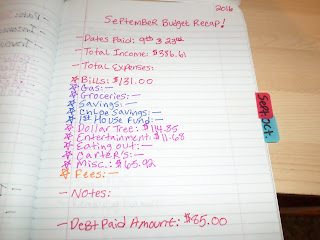 2016
September Budget Recap!
- Dates Paid: 9th & 23rd
- Total Income: $386.61
- Total Expenses:
☆ Bills: $131.00
☆ Gas: —
☆ Groceries: —
☆ Savings: —
☆ Chloe Savings: —
☆ 1st House Fund: —
☆ Dollar Tree: $114.85
☆ Entertainment: $11.68
☆ Eating out: —
☆ Carter's: —
☆ Misc.: $65.92
☆ Fees: —
- Notes:
- Debt Paid Amount: $85.00
Sept
Oct.